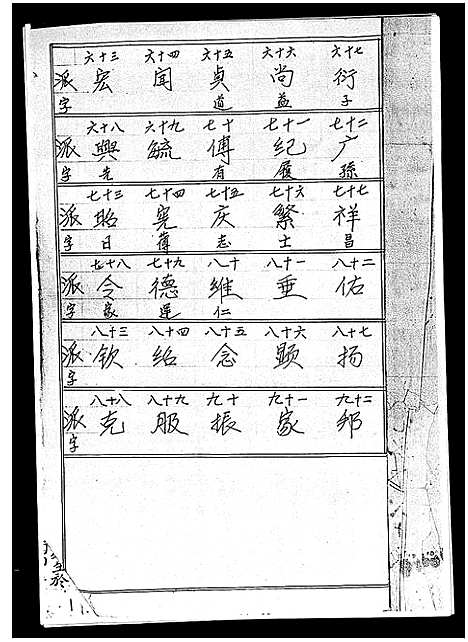 六十三 六十四 六十五 六十六 六十七
派 宏 闻 贞 尚 衍
字 道 益 子
六十八 六十九 七十 七十一 七十二
派 興 毓 傅 纪 广
字 先 有 履 孫
七十三 七十四 七十五 七十六 七十七
派 昭 宪 庆 繁 祥
字 日 志 士 昌
七十八 七十九 八十 八十一 八十二
派 令 德 维 垂 佑
字 家 運 仁
八十三 八十四 八十五 八十六 八十七
派 钦 绍 念 顕 扬
字
八十八 八十九 九十 九十一 九十二
派 克 服 振 家 邦
字